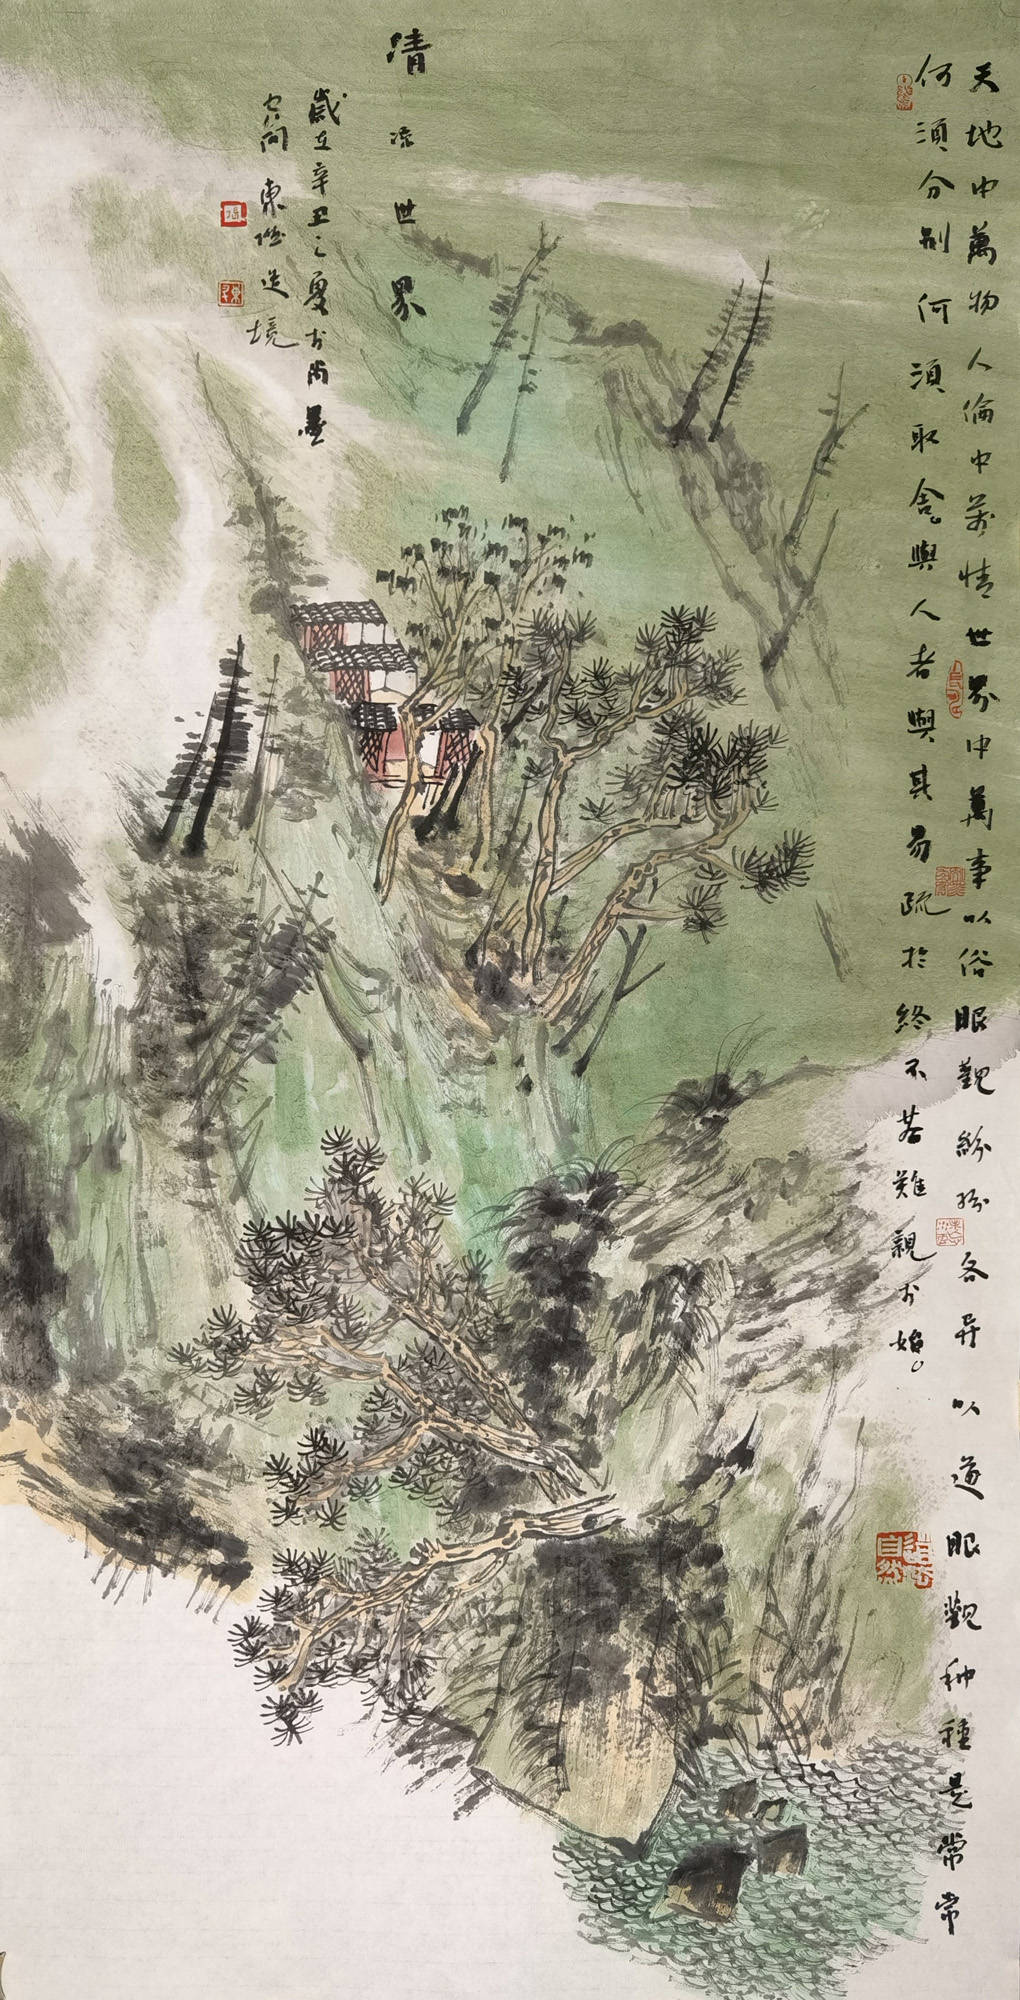 天地中萬物人倫中萬情世界中萬事以俗眼觀紛紛各異以道眼觀种種是常常
何須分別何須取舍與人者與其易疏於終不若難親於始
道法自然
清凉世界
歲在辛丑之夏於尚墨
空间東造境